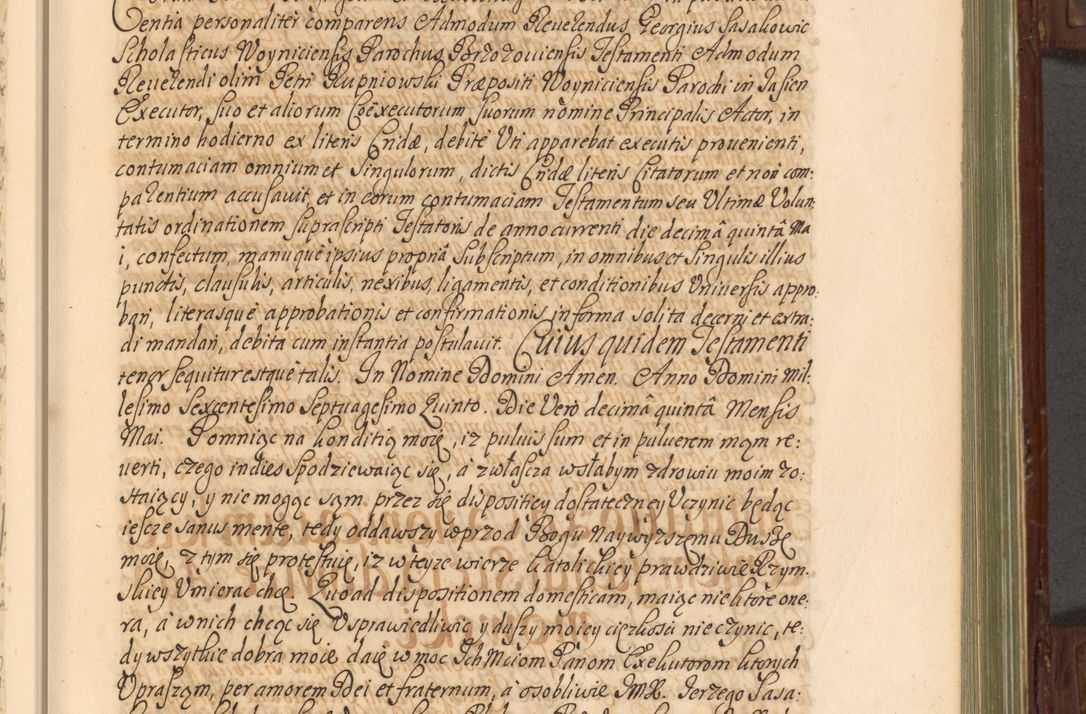 Centia personaliter comparens Admodum Reverendus Georgius Sasakowic
Scholasticus Woyniciensis Parochus Brzozouiensis Testamenti Admodum
Reuerendi olim Petri Kupniowski Præpositi Woyniciensis Parochi in Jasien
Executor, suo et aliorum Coexecutorum suorum nomine Principalis Actor, in
termino hodierno ex literis Cndæ, debite Uti apparebat executis prouenienti,
contumaciam omnium et Singulorum, dictis Cndæ literis Citatorum et non com:
parentium accusauit, et in eorum contumaciam Testamentum seu Ultimæ Volun:
tatis ordinationem suprascripti Testatoris de anno currenti die decimâ quintâ Ma
i, confectum, manuque ipsius propriâ Subscriptum, in omnibus et Singulis illius
punctis, clausulis, articulis, nexibus, ligamentis, et conditionibus Uniuersis appro:
bari, literasque approbationis et confirmationis in forma solita decerni et extra:
di mandari, debita cum instantia postulauit. Cuius quidem Testamenti
tenor sequitur estque talis. In Nomine Domini Amen. Anno Domini Mil:
lesimo Sexcentesimo Septuagesimo Quinto. Die Vero decimâ quintâ Mensis
Mai. Pomniąc na konditią moię, iz puluis sum et in puluerem mam re:
uerti, czego indies spodziewaiąc się, a zwłascza w słabym zdrowiu moim zo:
staiący, y nie mogąc sąm przez się dispositiey dostateczney Uczynic będąc
iescze sanus mente, tedy oddawszy wprzod Bogu Naywyzszemu Duszę
moię, z tym się protestuię, iz w teyze wierze katolickiey prawdziwie Rzym:
skiey Umierac chcę. Quoad dispositionem domesticam, maiąc nie ktore one:
ra, a w nich chcąc się Usprawiedliwic y duszy moiey cięzkosci nie czynic, te:
dy wszytkie dobra moie daię w moc Ich Mciom Panom Exekutorom ktorych
Upraszam, per amorem Dei et fraternum, a osobliwie JMX. Jerzego Sasa: